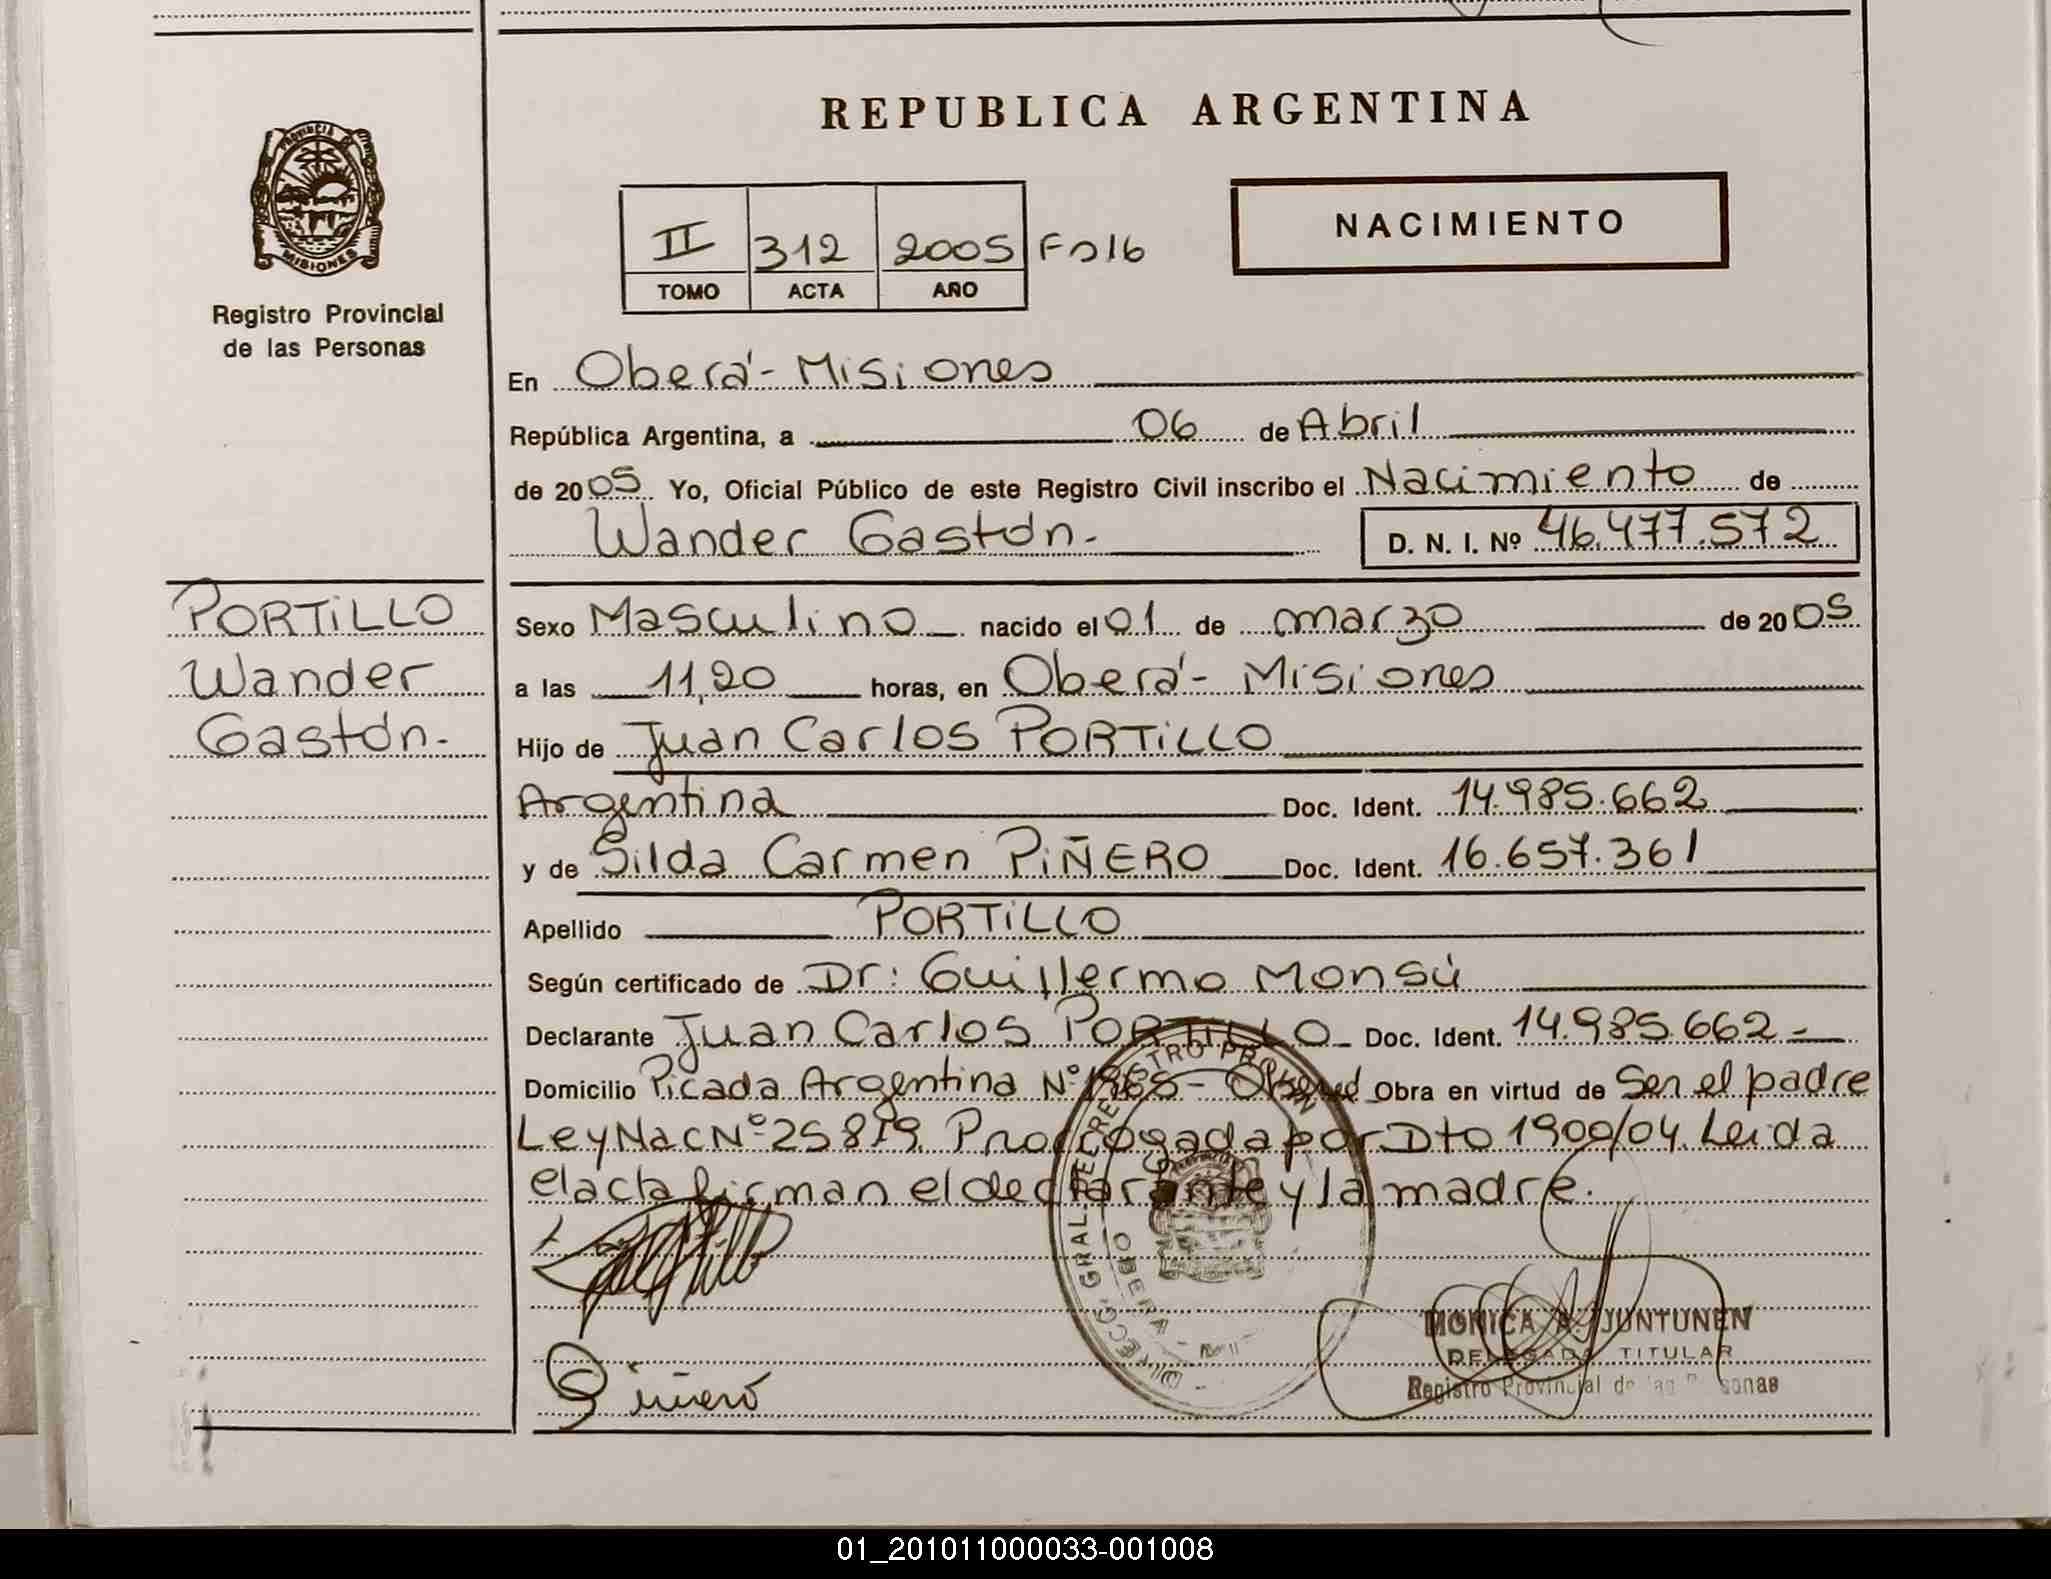 REPUBLICA ARGENTINA
PROVINCIA
MISIONES
Registro Provincial
de las Personas
NACIMIENTO
II 312 2005 Fº 16
TOMO ACTA AÑO
En Oberá - Misiones
República Argentina, a 06 de Abril
de 2005 Yo, Oficial Público de este Registro Civil inscribo el Nacimiento de
Wander Gastón.- D. N. I. Nº 46.477.572
PORTiLLO
Wander
Gastón.-
Sexo Masculino nacido el 01 de marzo de 2005
a las 11,20 horas, en Oberá - Misiones
Hijo de Juan Carlos PORTiLLO
Argentina Doc. Ident. 14.985.662
y de Silda Carmen PiÑERO Doc. Ident. 16.657.361
Apellido PORTiLLO
Según certificado de Dr: Guillermo Monsú
Declarante Juan Carlos PORTiLLO - Doc. Ident. 14.985.662 -
Domicilio Picada Argentina Nº - Oberá Obra en virtud de Ser el padre
Ley Nac Nº 25819. Prorrogada por Dto 1900/04. Leida
el acta firman el declarante y la madre.
Piñero
MONICA JUNTUNEN
DELEGADA TITULAR
Registro Provincial de las Personas
OBERA
01_201011000033-001008